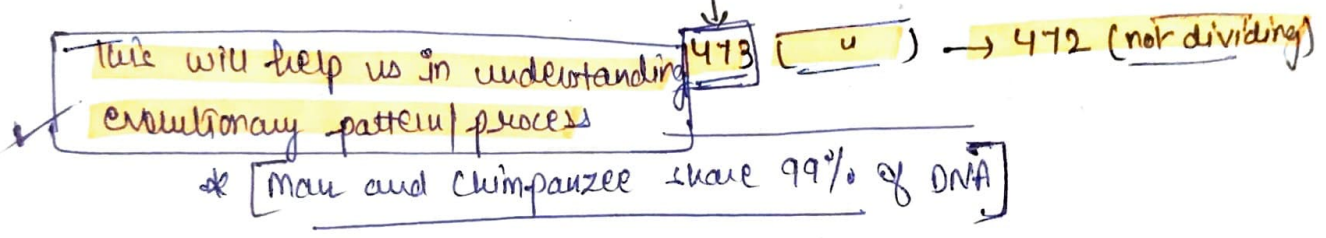 This will help us in understanding 473 ( " ) → 472 (not dividing)
evolutionary pattern/process
* [Man and Chimpanzee share 99% of DNA]